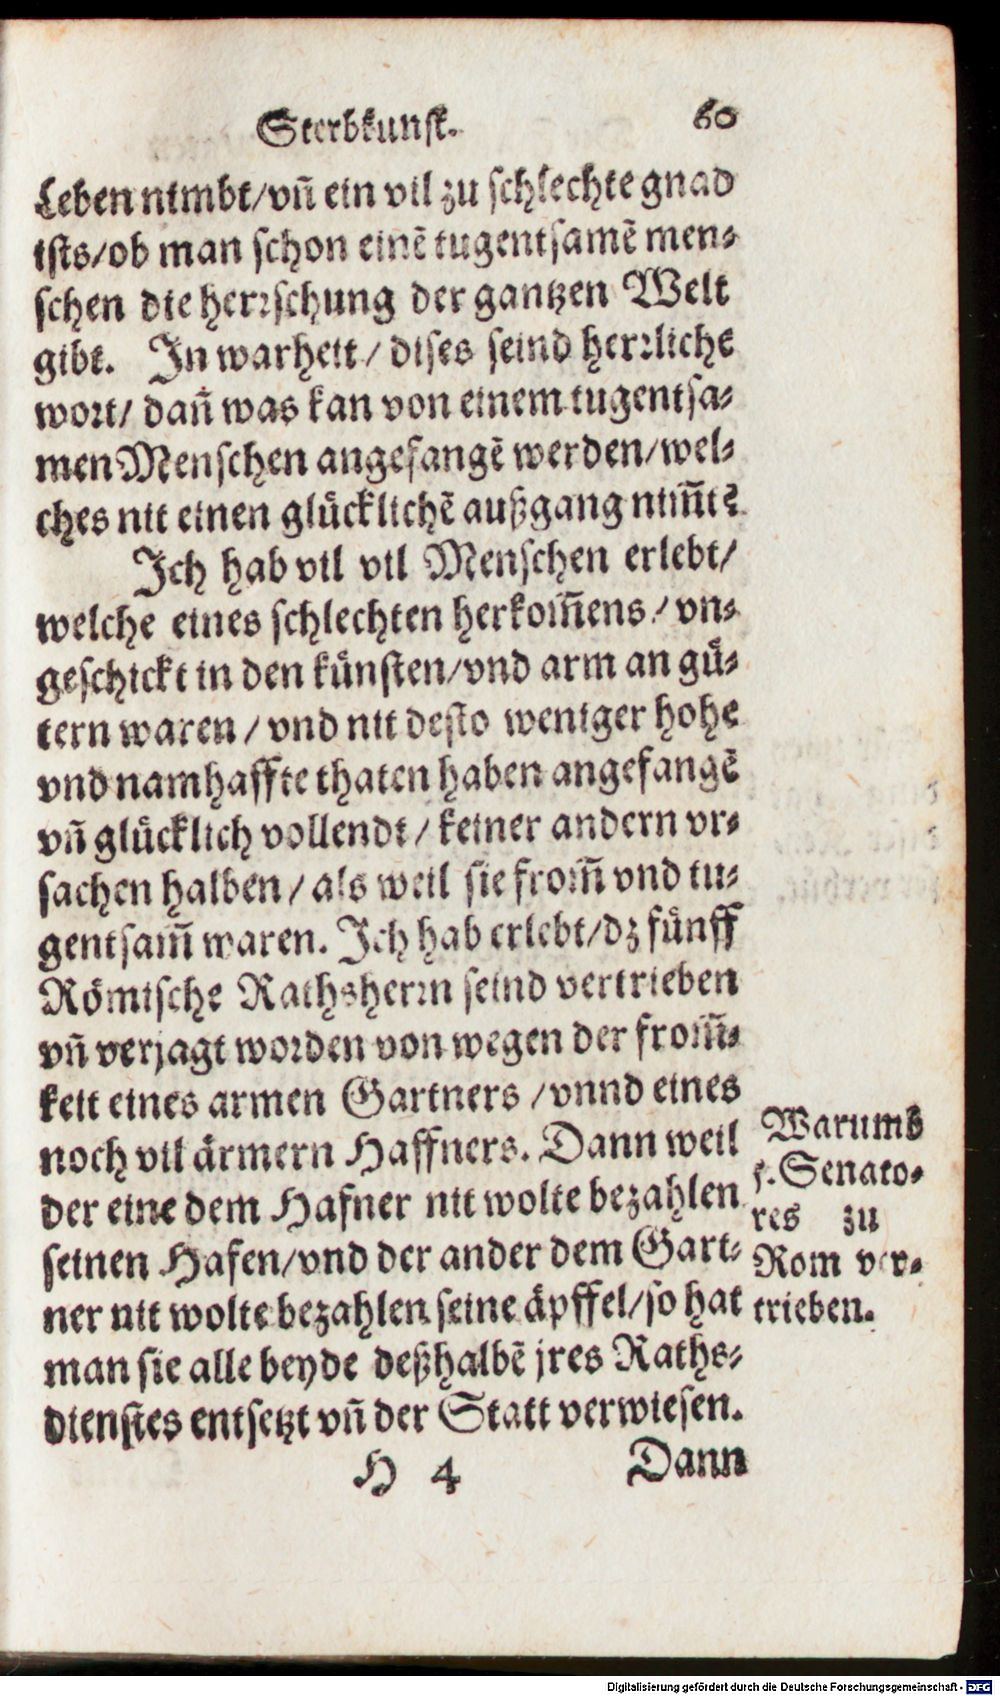 Sterbkunst. 60
Leben nimbt/vñ ein vil zu schlechte gnad
ists/ob man schon einẽ tugentsamẽ men-
schen die herrschung der gantzen Welt
gibt. In warheit/ dises seind herrliche
wort/ dañ was kan von einem tugentsa-
men Menschen angefangẽ werden/wel-
ches nit einen glücklichẽ außgang nim̃t?
Ich hab vil vil Menschen erlebt/
welche eines schlechten herkom̃ens/ vn-
geschickt in den künsten/vnd arm an gü-
tern waren/ vnd nit desto weniger hohe
vnd namhaffte thaten haben angefangẽ
vñ glücklich vollendt/ keiner andern vr-
sachen halben/ als weil sie from̃ vnd tu-
gentsam̃ waren. Ich hab erlebt/dz fünff
Römische Rathsherrn seind vertrieben
vñ verjagt worden von wegen der from̃-
keit eines armen Gartners/vnnd eines
noch vil ärmern Haffners. Dann weil
der eine dem Hafner nit wolte bezahlen
seinen Hafen/vnd der ander dem Gart-
ner nit wolte bezahlen seine äpffel/so hat
man sie alle beyde deßhalbẽ jres Raths-
dienstes entsetzt vñ der Statt verwiesen.
H 4 Dann
Warumb
5. Senato-
res zu
Rom ver-
trieben.
Digitalisierung gefördert durch die Deutsche Forschungsgemeinschaft - DFG